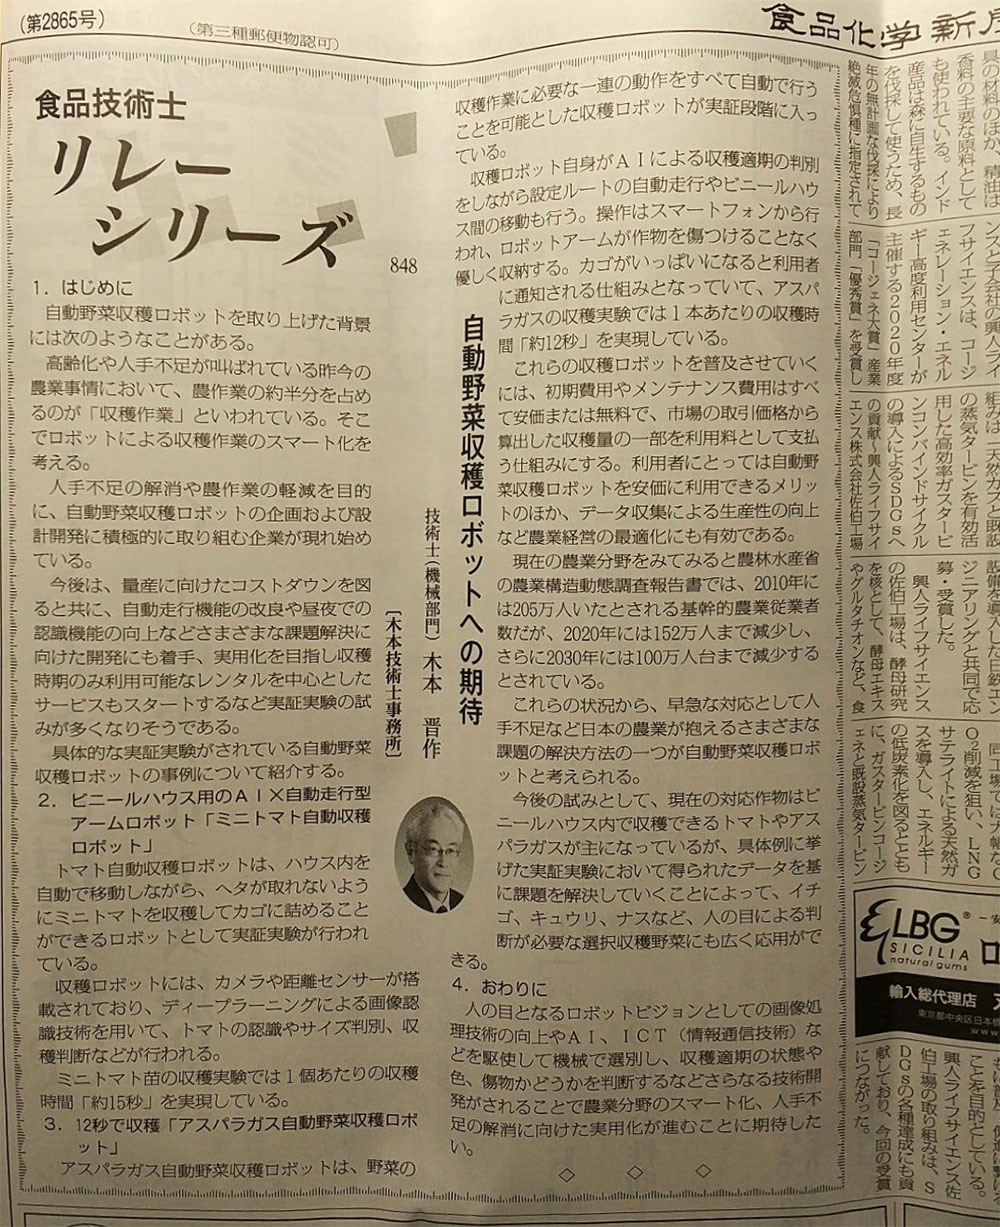 (第2865号)
(第三種郵便物認可)
食品化学新
食品技術士
リレー
シリーズ
848
自動野菜収穫ロボットへの期待
技術士(機械部門) 木本 晋作
〔木本技術士事務所〕
1．はじめに
自動野菜収穫ロボットを取り上げた背景
には次のようなことがある。
高齢化や人手不足が叫ばれている昨今の
農業事情において、農作業の約半分を占め
るのが「収穫作業」といわれている。そこ
でロボットによる収穫作業のスマート化を
考える。
人手不足の解消や農作業の軽減を目的
に、自動野菜収穫ロボットの企画および設
計開発に積極的に取り組む企業が現れ始め
ている。
今後は、量産に向けたコストダウンを図
ると共に、自動走行機能の改良や昼夜での
認識機能の向上などさまざまな課題解決に
向けた開発にも着手、実用化を目指し収穫
時期のみ利用可能なレンタルを中心とした
サービスもスタートするなど実証実験の試
みが多くなりそうである。
具体的な実証実験がされている自動野菜
収穫ロボットの事例について紹介する。
2．ビニールハウス用のＡＩ×自動走行型
アームロボット「ミニトマト自動収穫
ロボット」
トマト自動収穫ロボットは、ハウス内を
自動で移動しながら、ヘタが取れないよう
にミニトマトを収穫してカゴに詰めること
ができるロボットとして実証実験が行われ
ている。
収穫ロボットには、カメラや距離センサーが搭
載されており、ディープラーニングによる画像認
識技術を用いて、トマトの認識やサイズ判別、収
穫判断などが行われる。
ミニトマト苗の収穫実験では１個あたりの収穫
時間「約15秒」を実現している。
3．12秒で収穫「アスパラガス自動野菜収穫ロボ
ット」
アスパラガス自動野菜収穫ロボットは、野菜の
収穫作業に必要な一連の動作をすべて自動で行う
ことを可能とした収穫ロボットが実証段階に入っ
ている。
収穫ロボット自身がＡＩによる収穫適期の判別
をしながら設定ルートの自動走行やビニールハウ
ス間の移動も行う。操作はスマートフォンから行
われ、ロボットアームが作物を傷つけることなく
優しく収納する。カゴがいっぱいになると利用者
に通知される仕組みとなっていて、アスパ
ラガスの収穫実験では１本あたりの収穫時
間「約12秒」を実現している。
これらの収穫ロボットを普及させていく
には、初期費用やメンテナンス費用はすべ
て安価または無料で、市場の取引価格から
算出した収穫量の一部を利用料として支払
う仕組みにする。利用者にとっては自動野
菜収穫ロボットを安価に利用できるメリッ
トのほか、データ収集による生産性の向上
など農業経営の最適化にも有効である。
現在の農業分野をみてみると農林水産省
の農業構造動態調査報告書では、2010年に
は205万人いたとされる基幹的農業従業者
数だが、2020年には152万人まで減少し、
さらに2030年には100万人台まで減少する
とされている。
これらの状況から、早急な対応として人
手不足など日本の農業が抱えるさまざまな
課題の解決方法の一つが自動野菜収穫ロボ
ットと考えられる。
今後の試みとして、現在の対応作物はビ
ニールハウス内で収穫できるトマトやアス
パラガスが主になっているが、具体例に挙
げた実証実験において得られたデータを基
に課題を解決していくことによって、イチ
ゴ、キュウリ、ナスなど、人の目による判
断が必要な選択収穫野菜にも広く応用がで
きる。
4．おわりに
人の目となるロボットビジョンとしての画像処
理技術の向上やＡＩ、ＩＣＴ（情報通信技術）な
どを駆使して機械で選別し、収穫適期の状態や
色、傷物かどうかを判断するなどさらなる技術開
発がされることで農業分野のスマート化、人手不
足の解消に向けた実用化が進むことに期待した
い。
◇ ◇ ◇
具の材料のほか、精油は
香料の主要な原料として
も使われている。インド
産品は森に自生するもの
を伐採して使うため、長
年の無計画な伐採により
絶滅危惧種に指定されて
ンスと子会社の興人ライ
フサイエンスは、コージ
ェネレーション・エネル
ギー高度利用センターが
主催する２０２０年度
「コージェネ大賞」産業
部門「優秀賞」を受賞し
組みは「天然ガスと既設
の蒸気タービンを有効活
用した高効率ガスタービ
ンコンバインドサイクル
の導入によるＳＤＧｓへ
の貢献～興人ライフサイ
エンス株式会社佐伯工場
設備を導入した日鉄エン
ジニアリングと共同で応
募・受賞した。
興人ライフサイエンス
の佐伯工場は、酵母研究
を核として、酵母エキス
やグルタチオンなど、食
同工場では大幅なＣ
Ｏ２削減を狙い、ＬＮＧ
サテライトによる天然ガ
スを導入し、エネルギー
の低炭素化を図るととも
に、ガスタービンコージ
ェネと既設蒸気タービン
LBG®
SICILIA
natural gums
輸入総代理店
東京都中央区日本橋
ことを目的としている。
興人ライフサイエンス佐
伯工場の取り組みは、Ｓ
ＤＧｓの各種達成にも貢
献しており、今回の受賞
につながった。